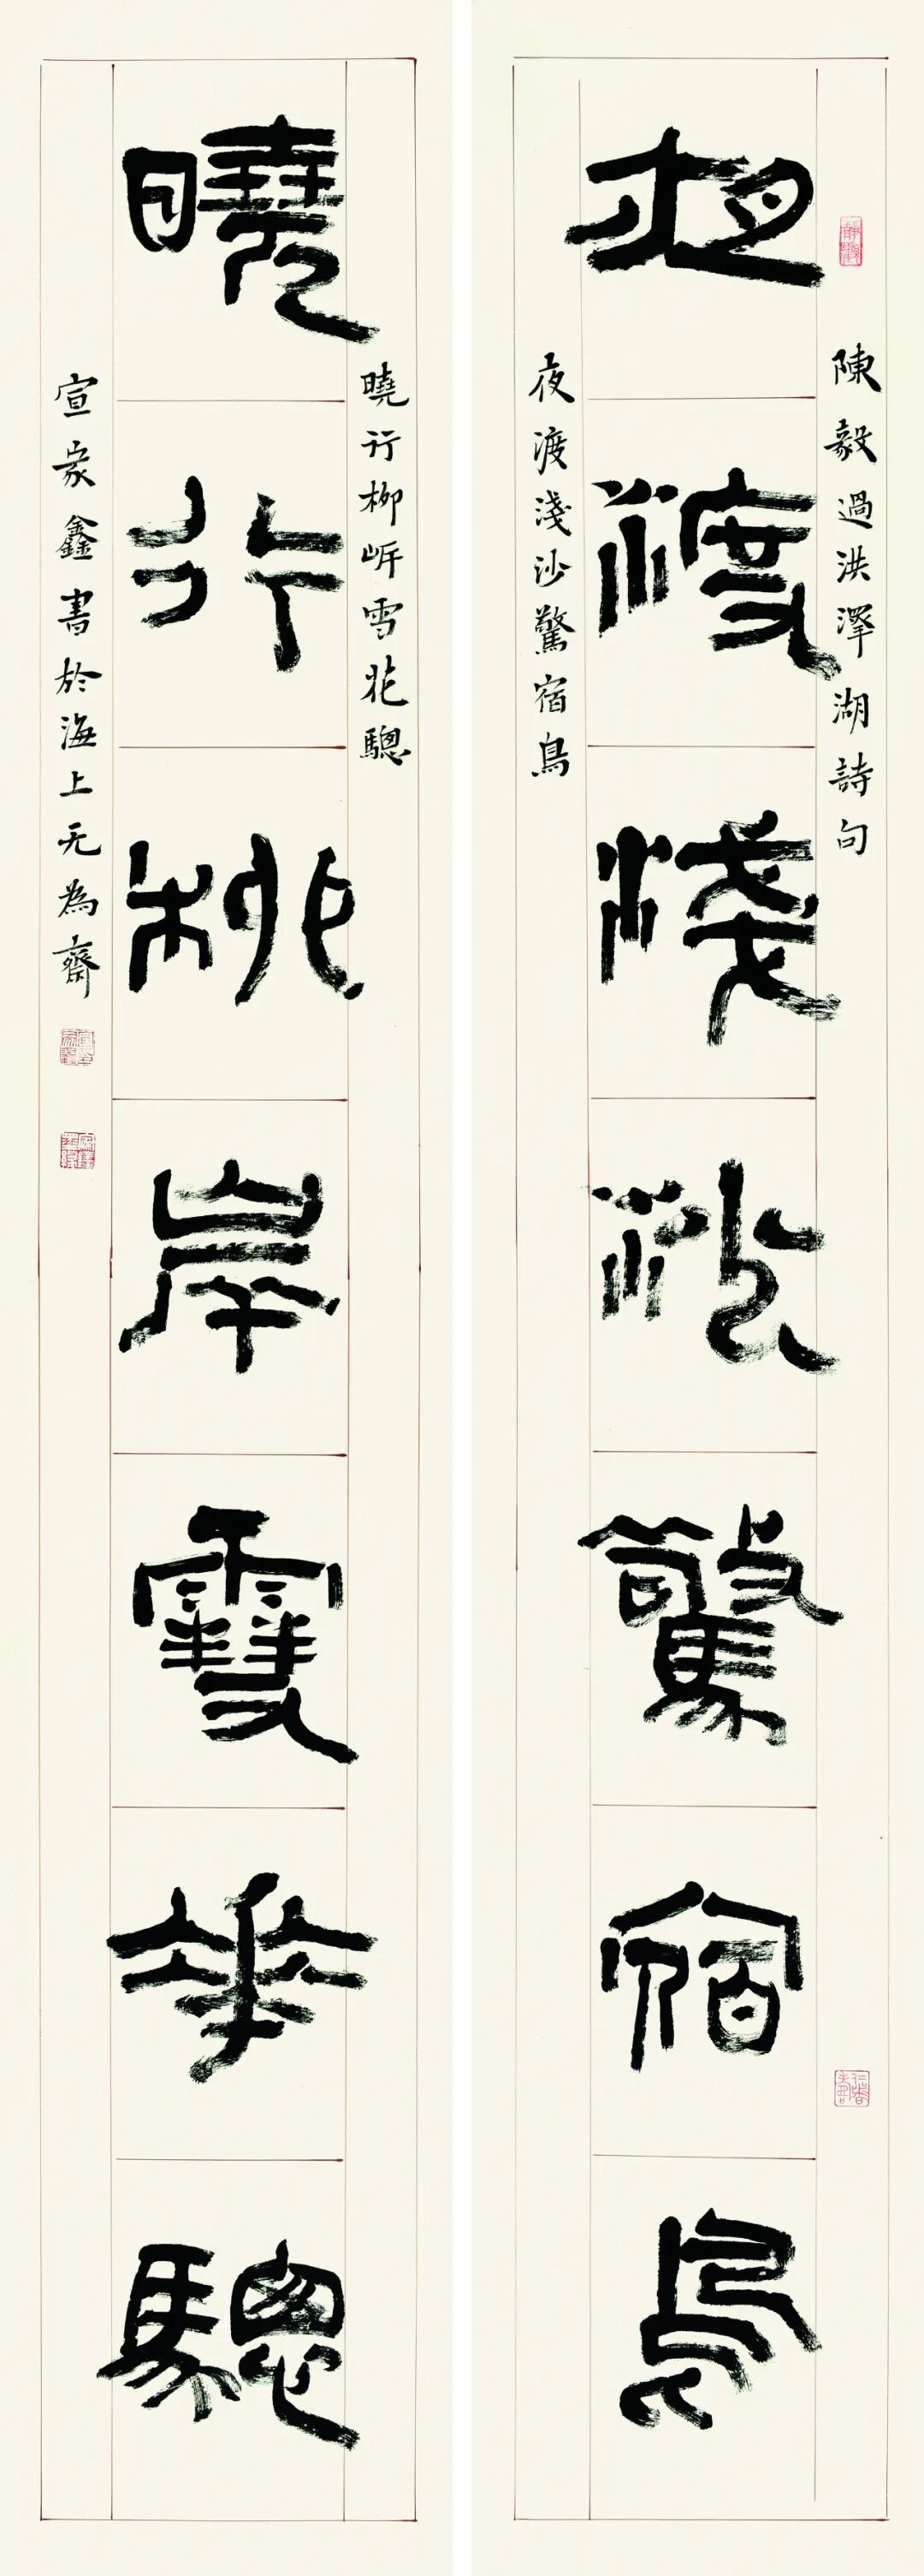 陳毅過洪澤湖詩句
夜渡淺沙驚宿鳥
夜渡淺沙驚宿鳥
曉行柳岸雪花驄
曉行柳岸雪華驄
宣家鑫書於海上无為齋